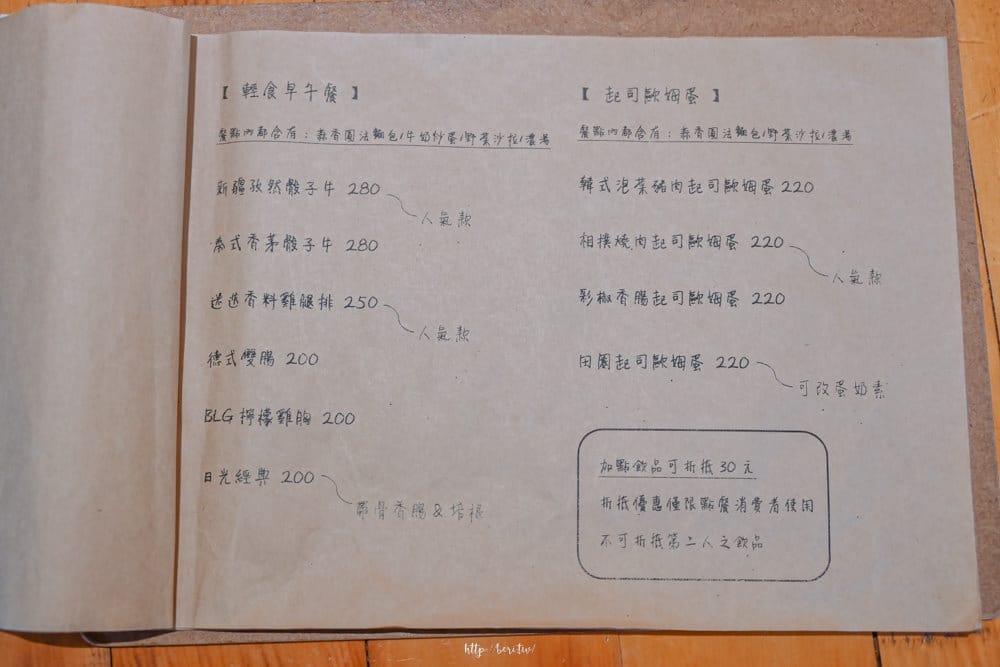 【 輕食早午餐 】
餐點內都含有：蒜香圓法麵包/牛奶炒蛋/野菜沙拉/濃湯
新疆孜然骰子牛 280
人氣款
泰式香茅骰子牛 280
逃逃香料雞腿排 250
人氣款
德式雙腸 200
BLG 檸檬雞胸 200
日光經典 200
帶骨香腸 & 培根
【 起司歐姆蛋 】
餐點內都含有：蒜香圓法麵包/野菜沙拉/濃湯
韓式泡菜豬肉起司歐姆蛋 220
相撲燒肉起司歐姆蛋 220
人氣款
彩椒香腸起司歐姆蛋 220
田園起司歐姆蛋 220
可改蛋奶素
加點飲品可折抵 30 元
折抵優惠僅限點餐消費者使用
不可折抵第二人之飲品
http://beri.tw/